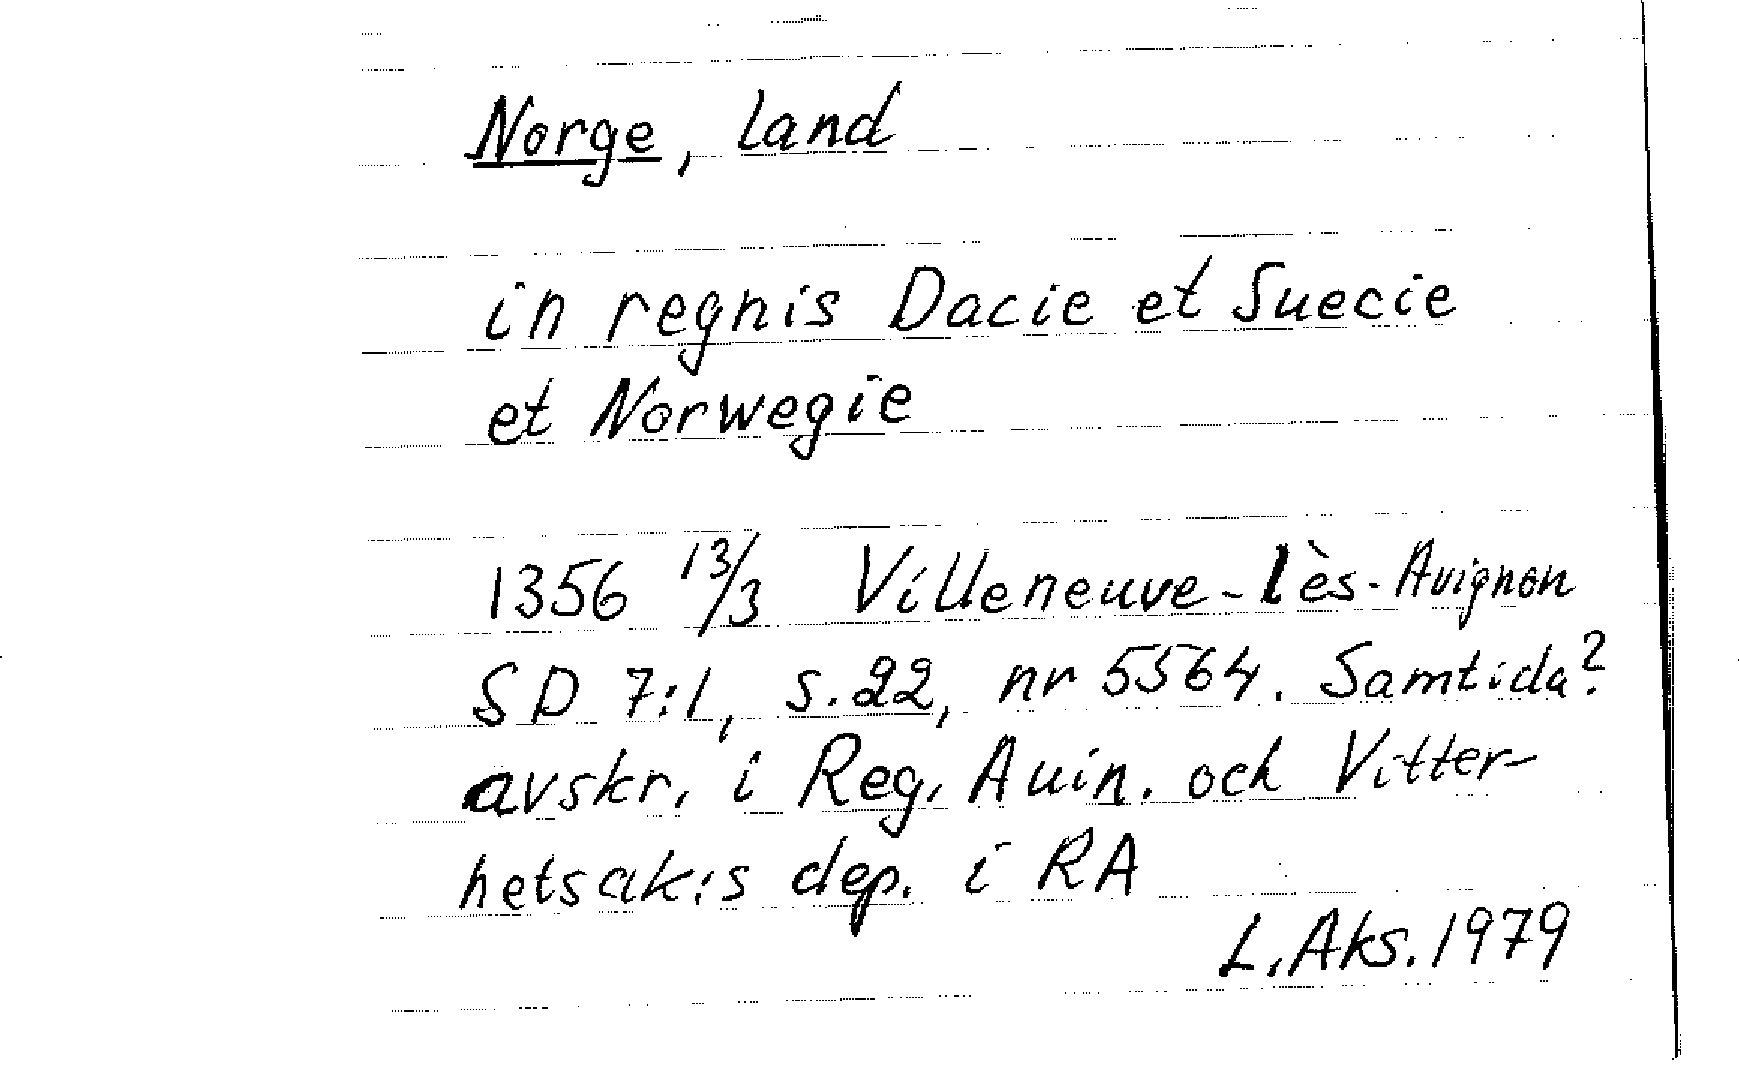 Norge, land
in regnis Dacie et Suecie
et Norwegie
1356 13/3 Villeneuve-lès-Avignon
SD 7:1, s. 22, nr 5564. Samtida?
avskr. i Reg. Auin. och Vitter-
hetsak:s dep. i RA
L. Aks. 1979